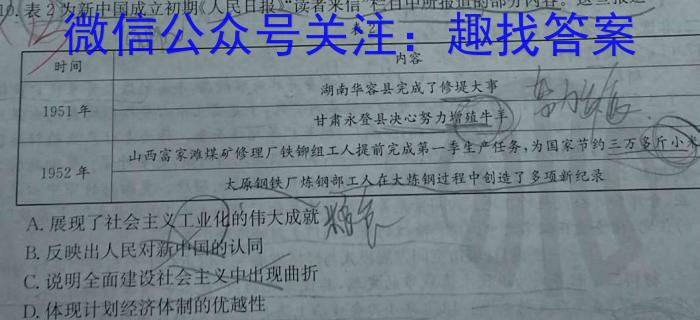 10. 表2为新中国成立初期《人民日报》“读者来信”栏目中所报道的部分内容。这些报道
微信公众号关注：趣找答案
表2
时间 内容
1951年 湖南华容县完成了修堤大事
甘肃永登县决心努力增殖牛羊
1952年 山西富家滩煤矿修理厂铁铆组工人提前完成第一季生产任务，为国家节约三万多斤小米
太原钢铁厂炼钢部工人在大炼钢过程中创造了多项新纪录
A. 展现了社会主义工业化的伟大成就
B. 反映出人民对新中国的认同
C. 说明全面建设社会主义中出现曲折
D. 体现计划经济体制的优越性